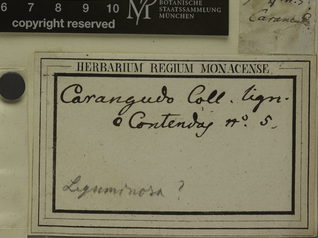 6 7 8 9 10
copyright reserved
BOTANISCHE
STAATSSAMMLUNG
MÜNCHEN
HERBARIUM REGIUM MONACENSE.
Carangudo Coll. lign.
Contendas nº. 5.
Leguminosa ?